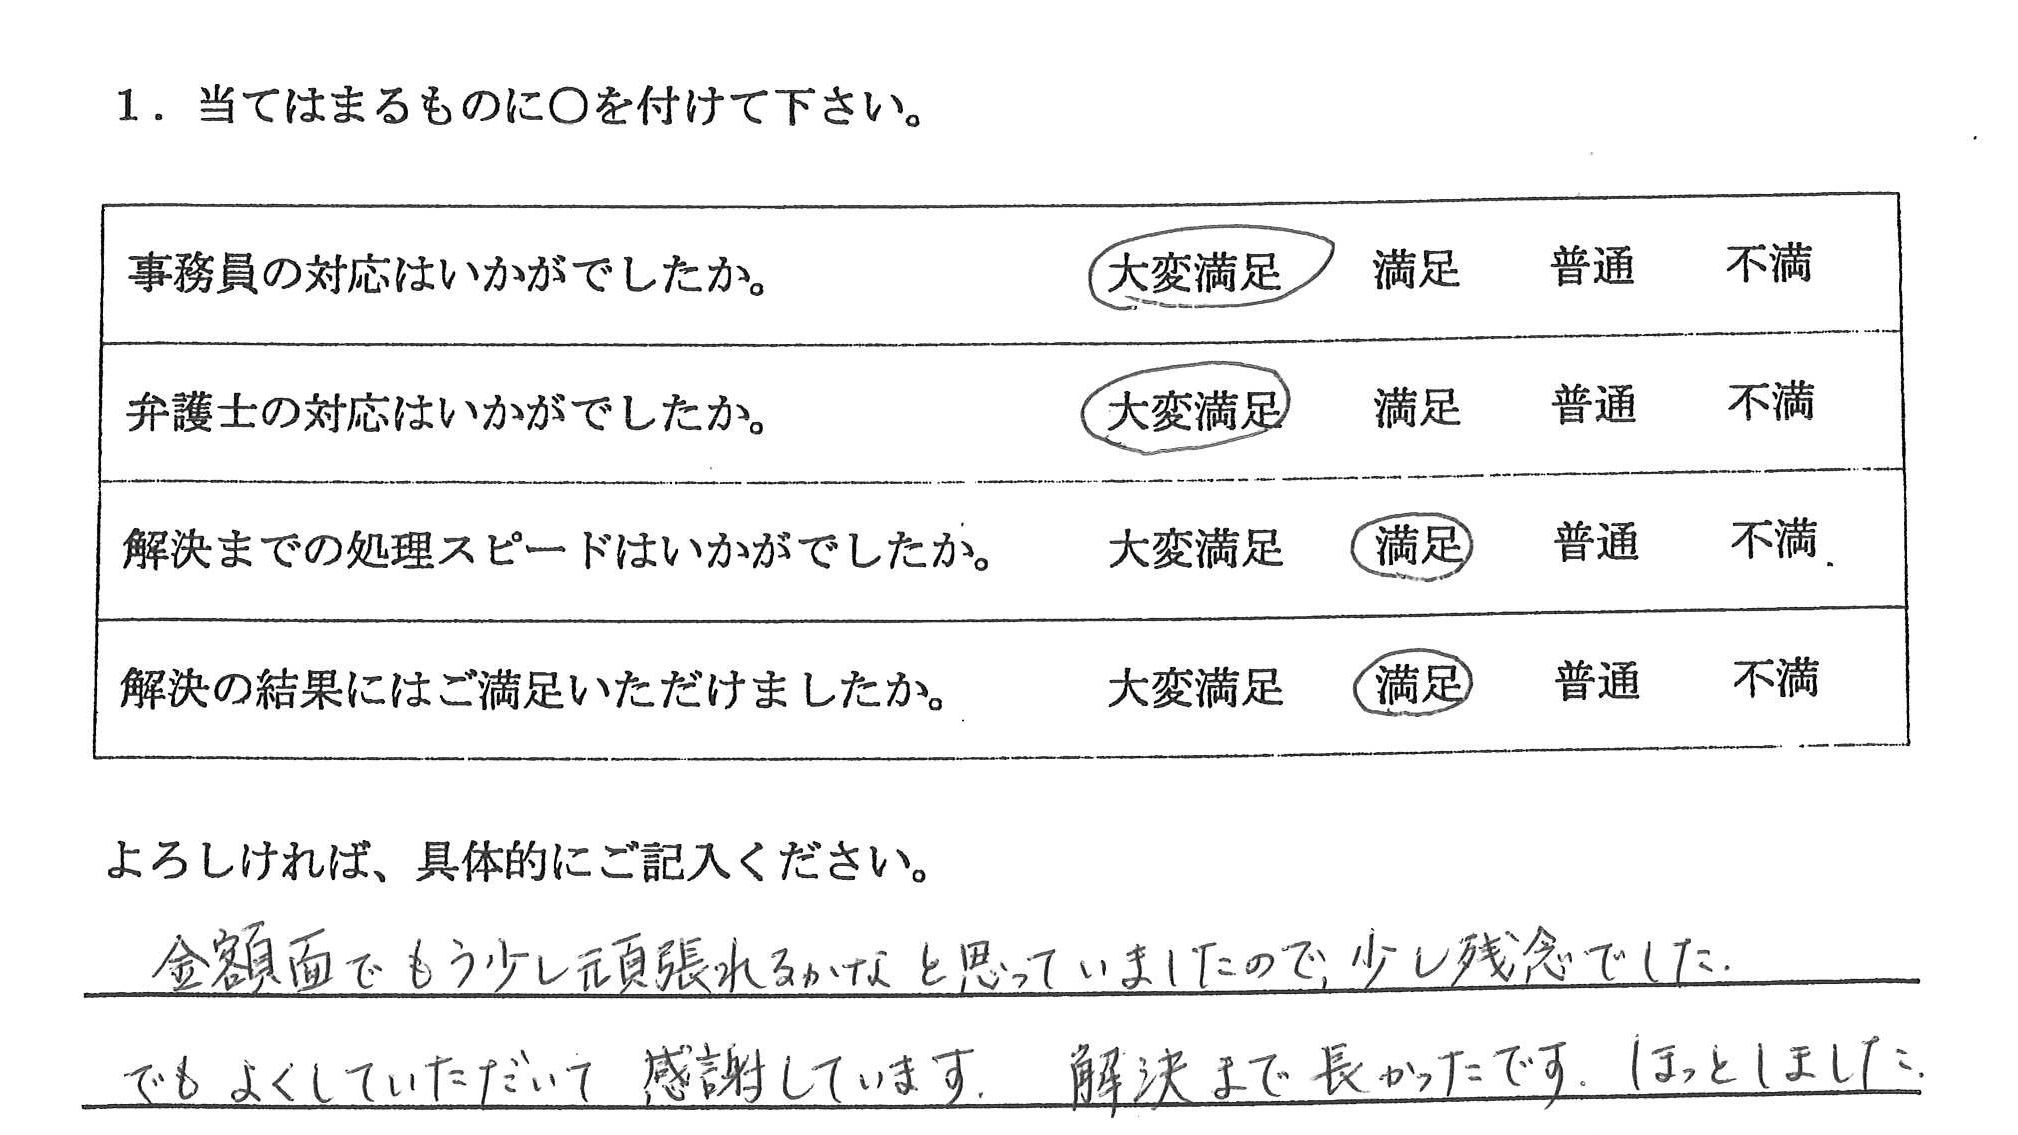 1．当てはまるものに〇を付けて下さい。
事務員の対応はいかがでしたか。 大変満足 満足 普通 不満
弁護士の対応はいかがでしたか。 大変満足 満足 普通 不満
解決までの処理スピードはいかがでしたか。 大変満足 満足 普通 不満
解決の結果にはご満足いただけましたか。 大変満足 満足 普通 不満
よろしければ、具体的にご記入ください。
金額面でもう少し頑張れるかなと思っていましたので、少し残念でした.
でもよくしていただいて感謝しています. 解決まで長かったです. ほっとしました.